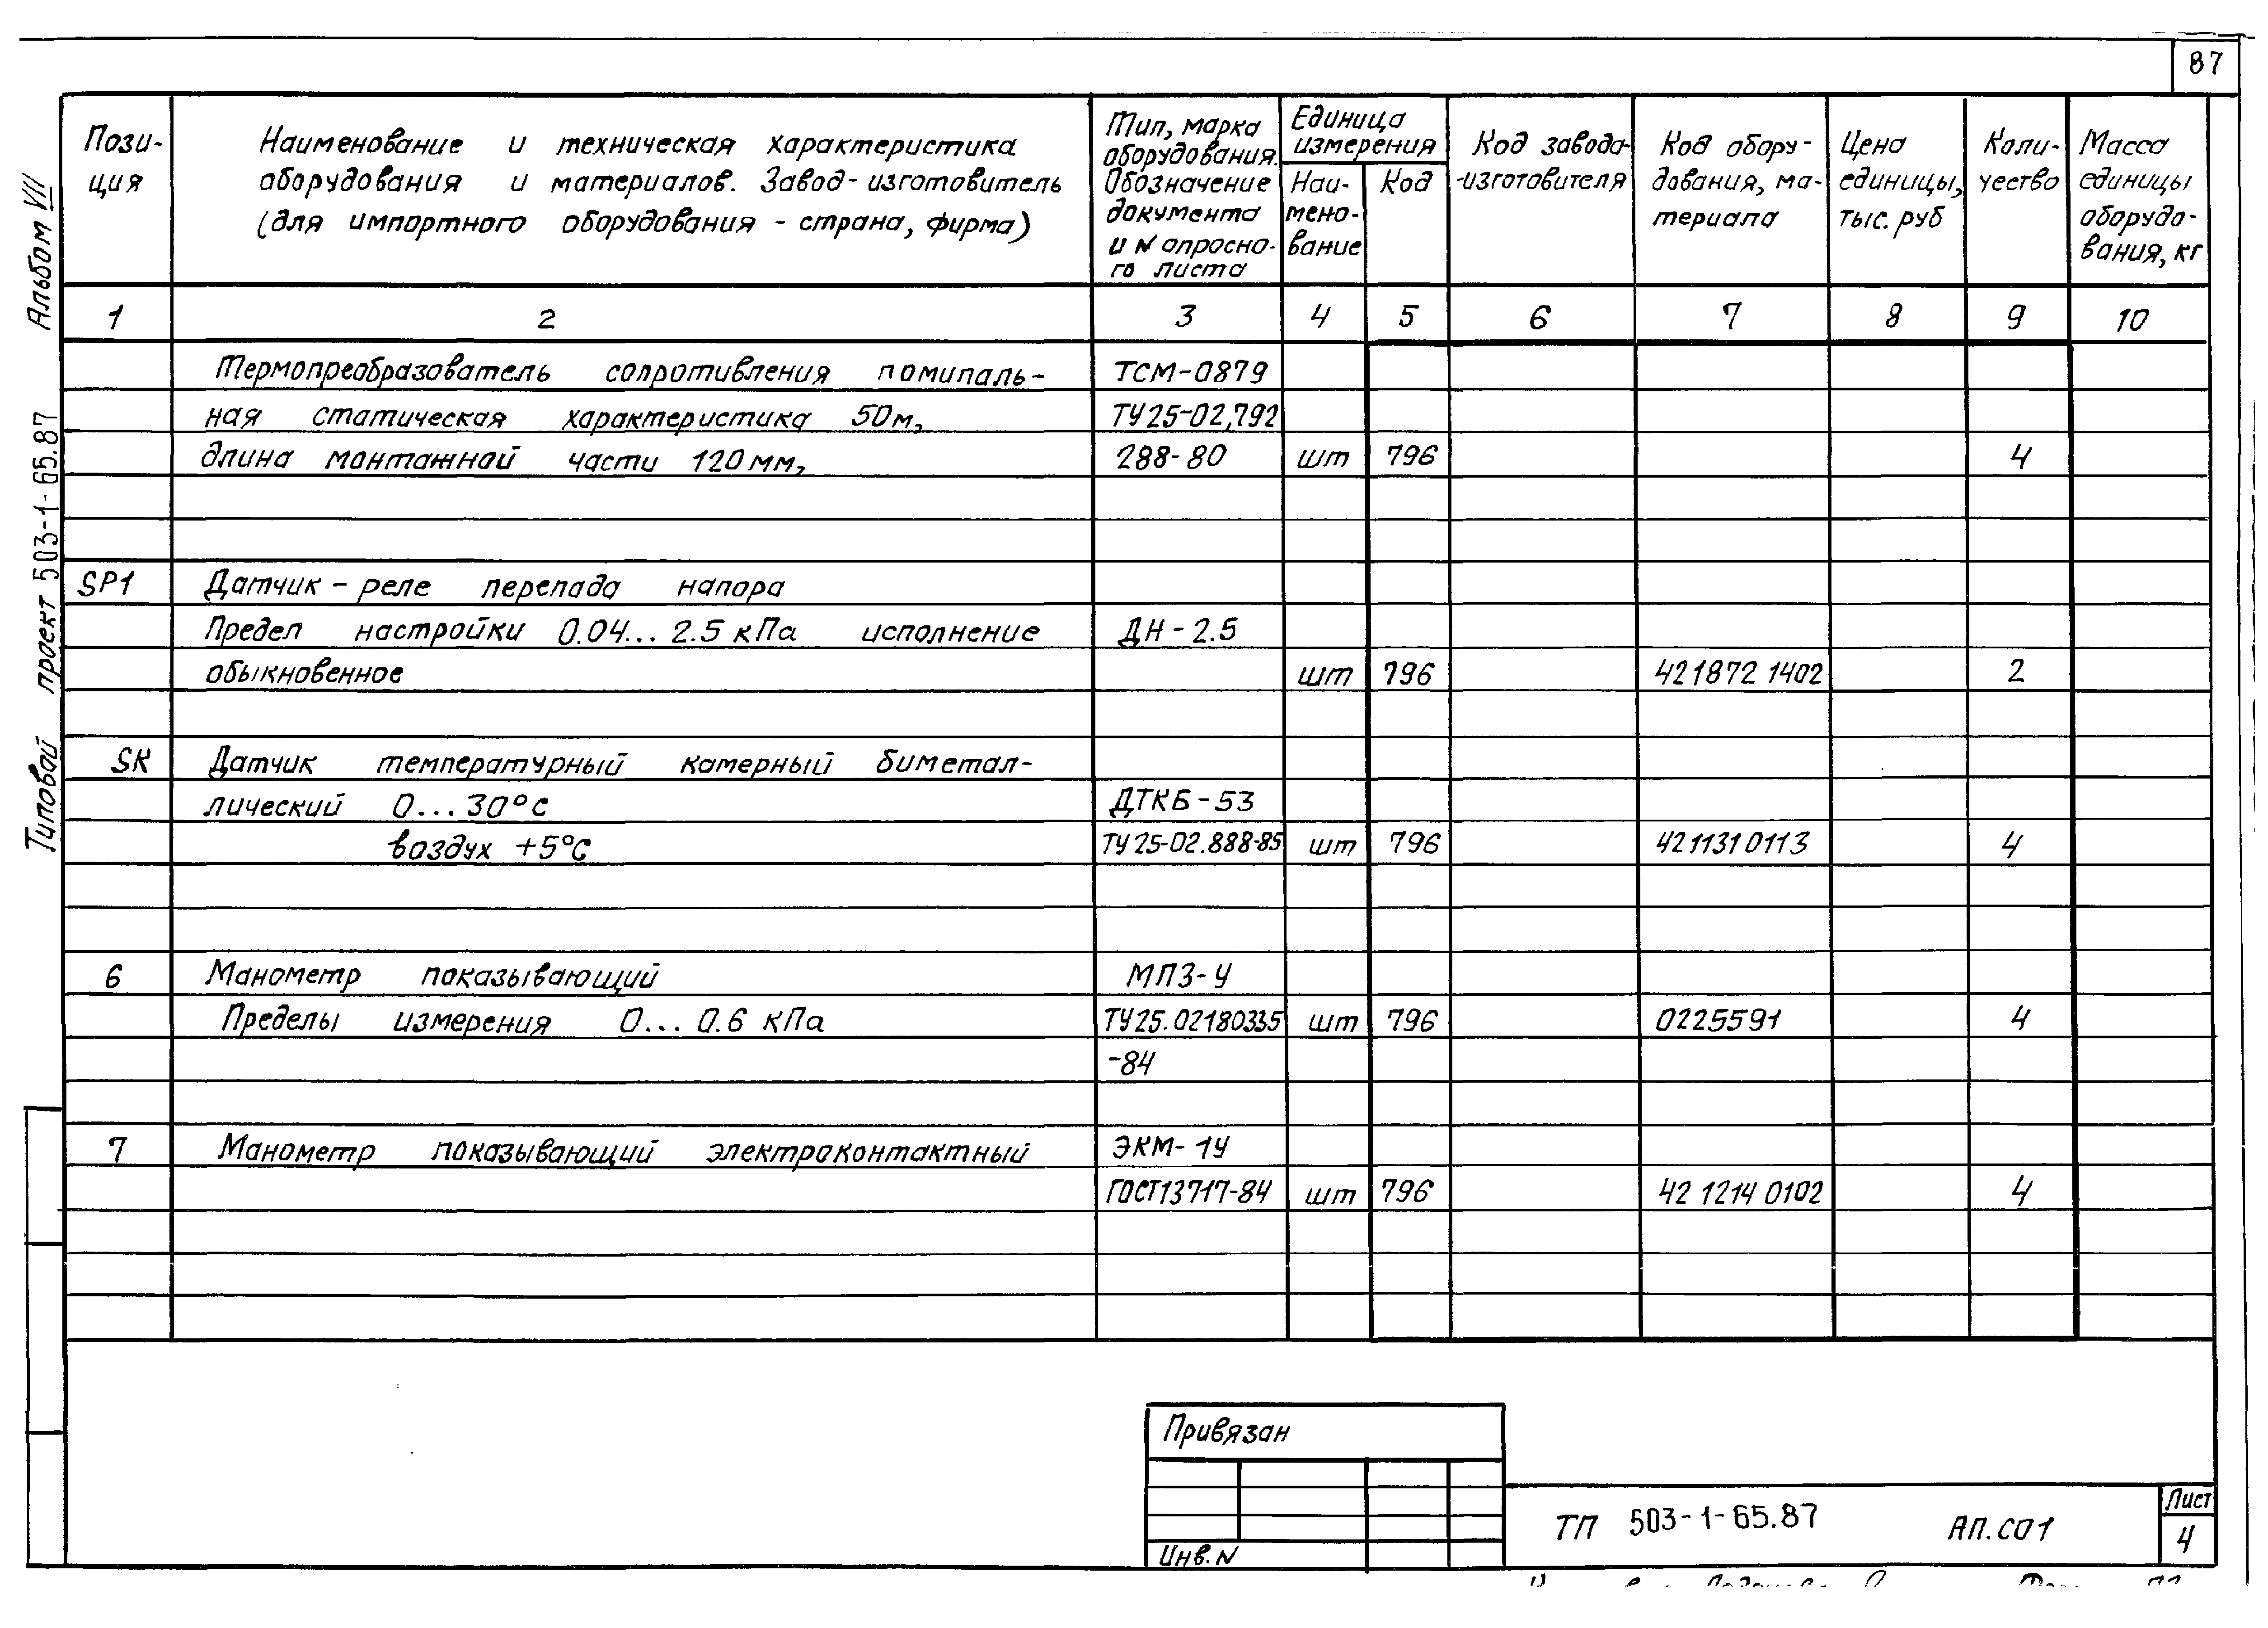 87
Альбом VII
Типовой проект 503-1-65.87
Пози-
ция
Наименование и техническая характеристика
оборудования и материалов. Завод-изготовитель
(для импортного оборудования - страна, фирма)
Тип, марка
оборудования.
Обозначение
документа
и N опросно-
го листа
Единица
измерения
Наи-
мено-
вание
Код
Код завода-
-изготовителя
Код обору-
дования, ма-
териала
Цена
единицы,
тыс. руб
Коли-
чество
Масса
единицы
оборудо-
вания, кг
1 2 3 4 5 6 7 8 9 10
Термопреобразователь сопротивления поминаль- ТСМ-0879
ная статическая характеристика 50м, ТУ25-02,792
длина монтажной части 120мм, 288-80 шт 796 4
SP1 Датчик-реле перепада напора
Предел настройки 0.04... 2.5 кПа исполнение ДН-2.5
обыкновенное шт 796 421872 1402 2
SK Датчик температурный камерный биметал-
лический 0...30°С ДТКБ-53
воздух +5°С ТУ25-02.888-85 шт 796 4211310113 4
6 Манометр показывающий МПЗ-У
Пределы измерения 0... 0.6 кПа ТУ25.02180335 шт 796 0225591 4
-84
7 Манометр показывающий электроконтактный ЭКМ-1У
ГОСТ13717-84 шт 796 42 1214 0102 4
Привязан
Инв.N
ТП 503-1-65.87 АП.СО1
Лист
4